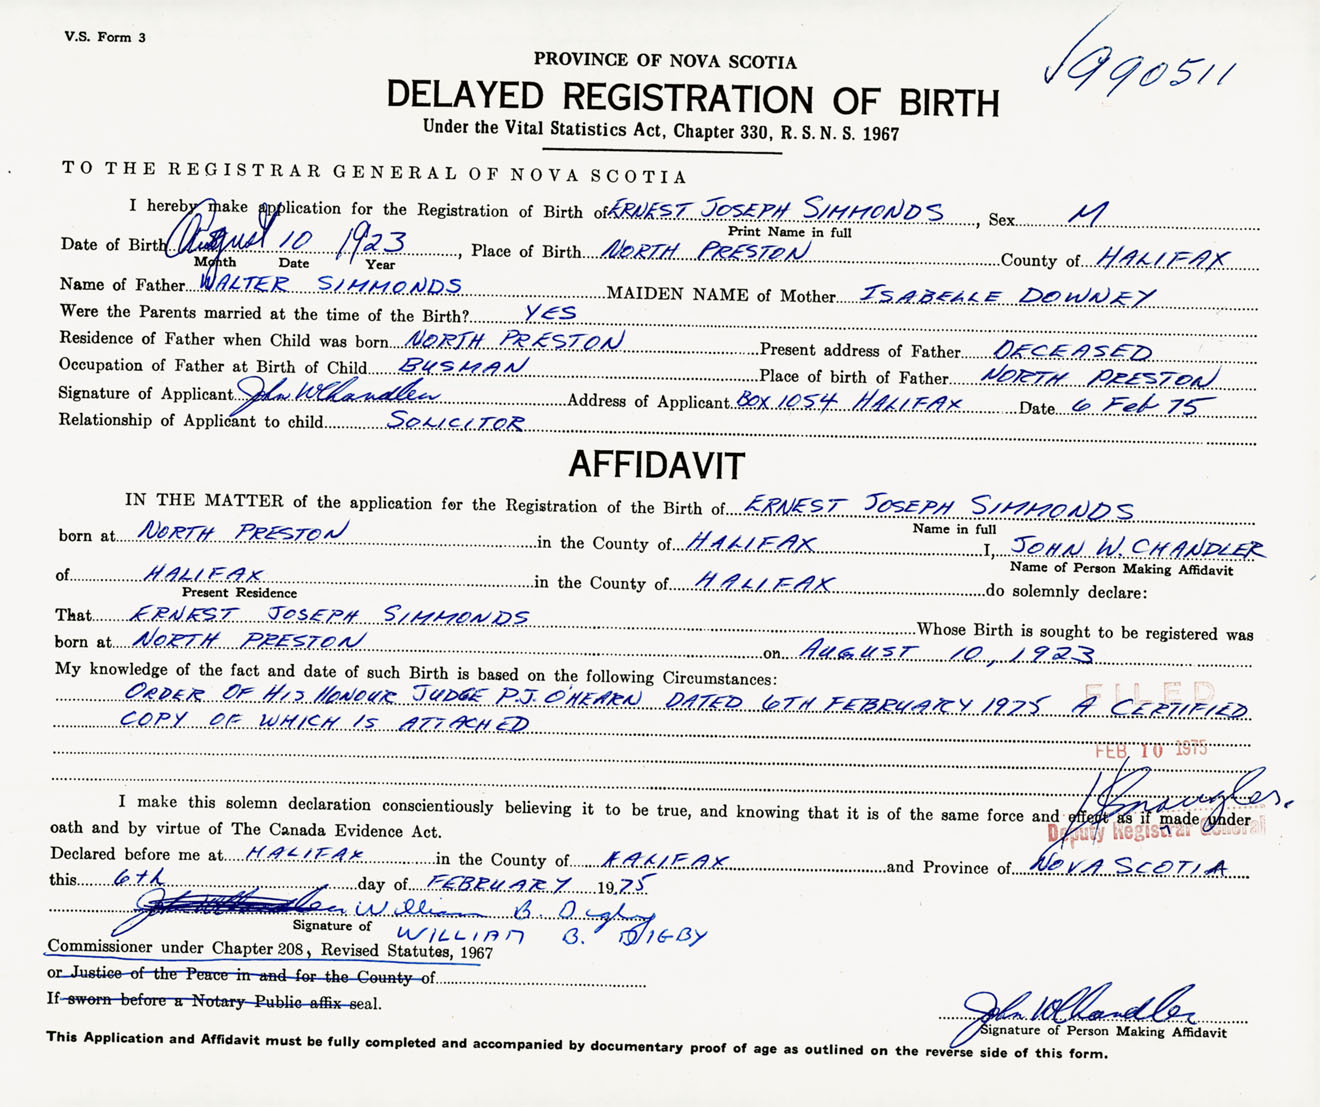 V.S. Form 3
990511
PROVINCE OF NOVA SCOTIA
DELAYED REGISTRATION OF BIRTH
Under the Vital Statistics Act, Chapter 330, R. S. N. S. 1967
TO THE REGISTRAR GENERAL OF NOVA SCOTIA
I hereby make application for the Registration of Birth of ERNEST JOSEPH SIMMONDS, Sex M
Print Name in full
Date of Birth August 10 1923, Place of Birth NORTH PRESTON County of HALIFAX
Month Date Year
Name of Father WALTER SIMMONDS MAIDEN NAME of Mother ISABELLE DOWNEY
Were the Parents married at the time of the Birth? YES
Residence of Father when Child was born NORTH PRESTON Present address of Father DECEASED
Occupation of Father at Birth of Child BUSMAN Place of birth of Father NORTH PRESTON
Signature of Applicant John W Chandler Address of Applicant BOX 1054 HALIFAX Date 6 Feb 75
Relationship of Applicant to child SOLICITOR
AFFIDAVIT
IN THE MATTER of the application for the Registration of the Birth of ERNEST JOSEPH SIMMONDS
Name in full
born at NORTH PRESTON in the County of HALIFAX I, JOHN W. CHANDLER
Name of Person Making Affidavit
of HALIFAX in the County of HALIFAX do solemnly declare:
Present Residence
That ERNEST JOSEPH SIMMONDS Whose Birth is sought to be registered was
born at NORTH PRESTON on AUGUST 10, 1923
My knowledge of the fact and date of such Birth is based on the following Circumstances:
ORDER OF HIS HONOUR JUDGE P.J. O'HEARN DATED 6TH FEBRUARY 1975 A CERTIFIED
COPY OF WHICH IS ATTACHED
FILED
FEB 10 1975
I make this solemn declaration conscientiously believing it to be true, and knowing that it is of the same force and effect as if made under
oath and by virtue of The Canada Evidence Act.
Deputy Registrar General
Declared before me at HALIFAX in the County of HALIFAX and Province of NOVA SCOTIA
this 6th day of FEBRUARY 1975
William B. Digby
Signature of WILLIAM B. DIGBY
Commissioner under Chapter 208, Revised Statutes, 1967
or Justice of the Peace in and for the County of
If sworn before a Notary Public affix seal.
John W Chandler
Signature of Person Making Affidavit
This Application and Affidavit must be fully completed and accompanied by documentary proof of age as outlined on the reverse side of this form.